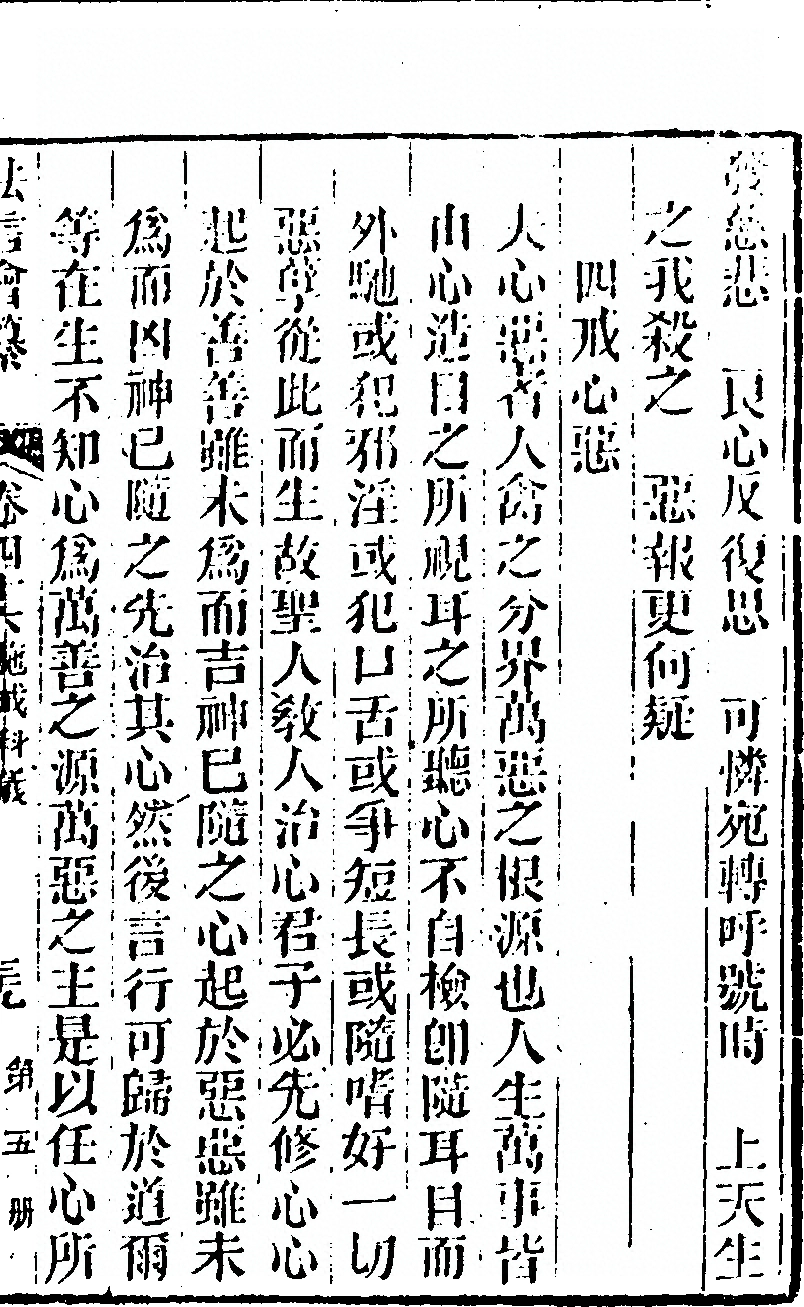 發慈悲　良心反復思　可憐宛轉呼號時　上天生
之我殺之　惡報更何疑
四戒心惡
夫心惡者人禽之分界萬惡之根源也人生萬事皆
由心造目之所視耳之所聽心不自檢卽隨耳目而
外馳或犯邪淫或犯口舌或爭短長或隨嗜好一切
惡孽從此而生故聖人敎人治心君子必先修心心
起於善善雖未爲而吉神已隨之心起於惡惡雖未
爲而凶神已隨之先治其心然後言行可歸於道爾
等在生不知心爲萬善之源萬惡之主是以任心所
法言會纂　卷四十六 施戒科儀　第五册